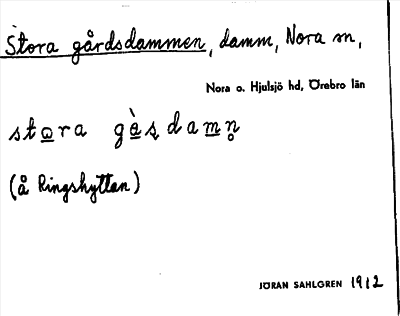 Stora gårdsdammen, damm, Nora sn,
Nora o. Hjulsjö hd, Örebro län
(å Ringshyttan)
JÖRAN SAHLGREN 1912